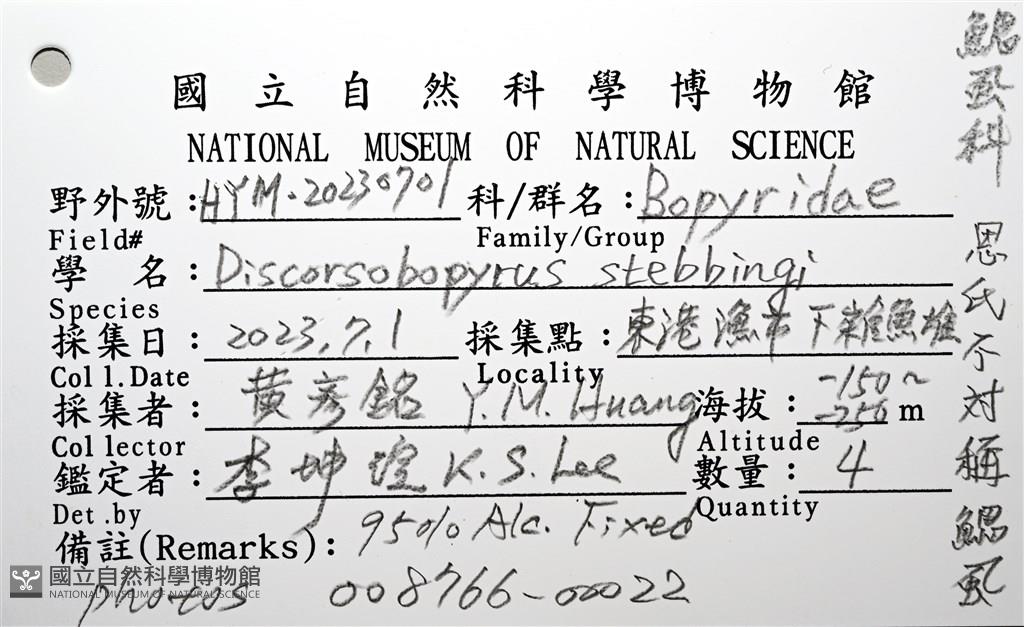 國立自然科學博物館
NATIONAL MUSEUM OF NATURAL SCIENCE
野外號：HYM.20230701 科/群名：Bopyridae
Field# Family/Group
學 名：Discorsobopyrus stebbingi
Species
採集日：2023.7.1 採集點：東港漁市下雜魚
Coll.Date Locality
採集者：黃彥銘 Y.M.Huang 海拔：-150~-250 m
Collector Altitude
鑑定者：李坤瑄 K.S.Lee 數量：4
Det.by Quantity
備註(Remarks)：95% Alc. Fixed
photos 008766-00022
國立自然科學博物館
NATIONAL MUSEUM OF NATURAL SCIENCE
鰓虱科 恩氏不对稱鰓虱